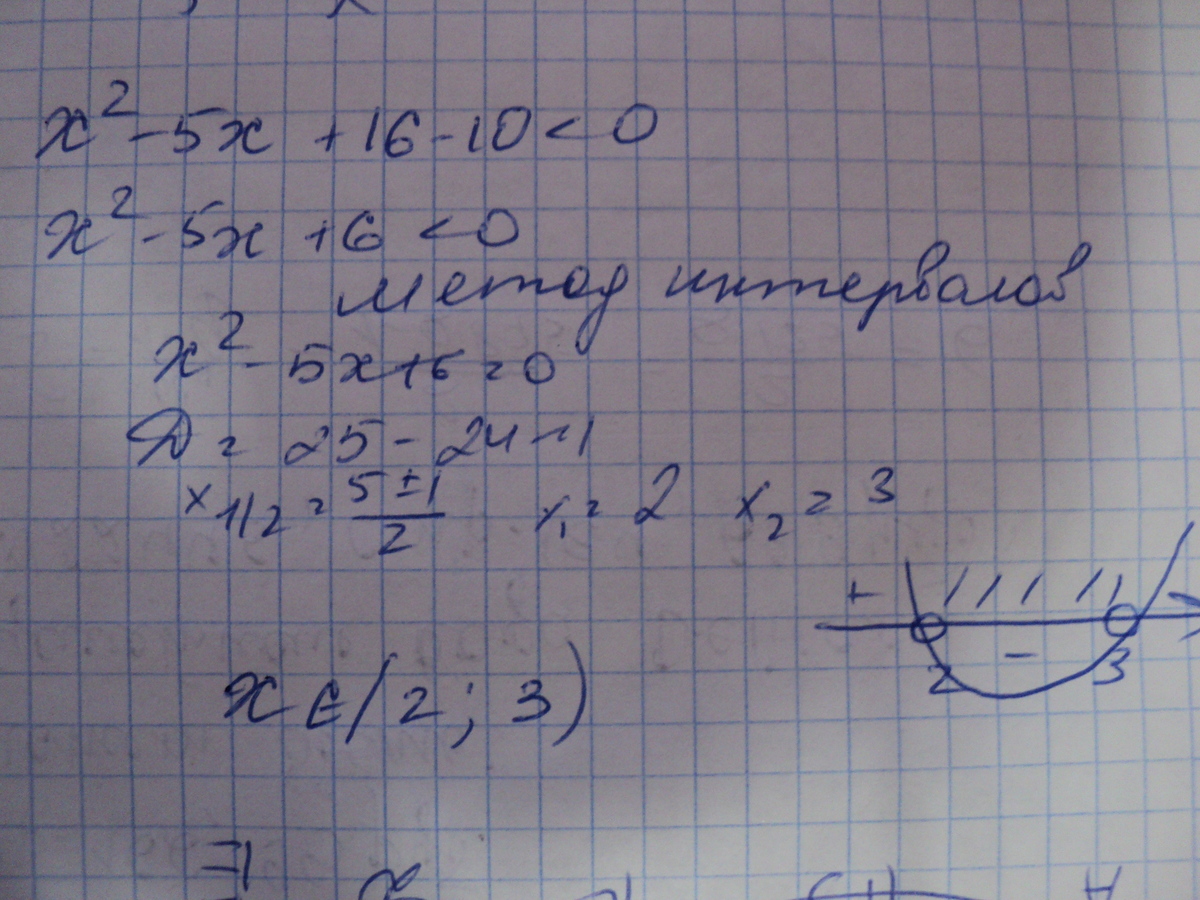 x² - 5x + 16 - 10 < 0
x² - 5x + 6 < 0
метод интервалов
x² - 5x + 6 = 0
D = 25 - 24 = 1
x 1/2 = (5 ± 1)/2 x₁ = 2 x₂ = 3
+ - 2 3
x ∈ (2; 3)